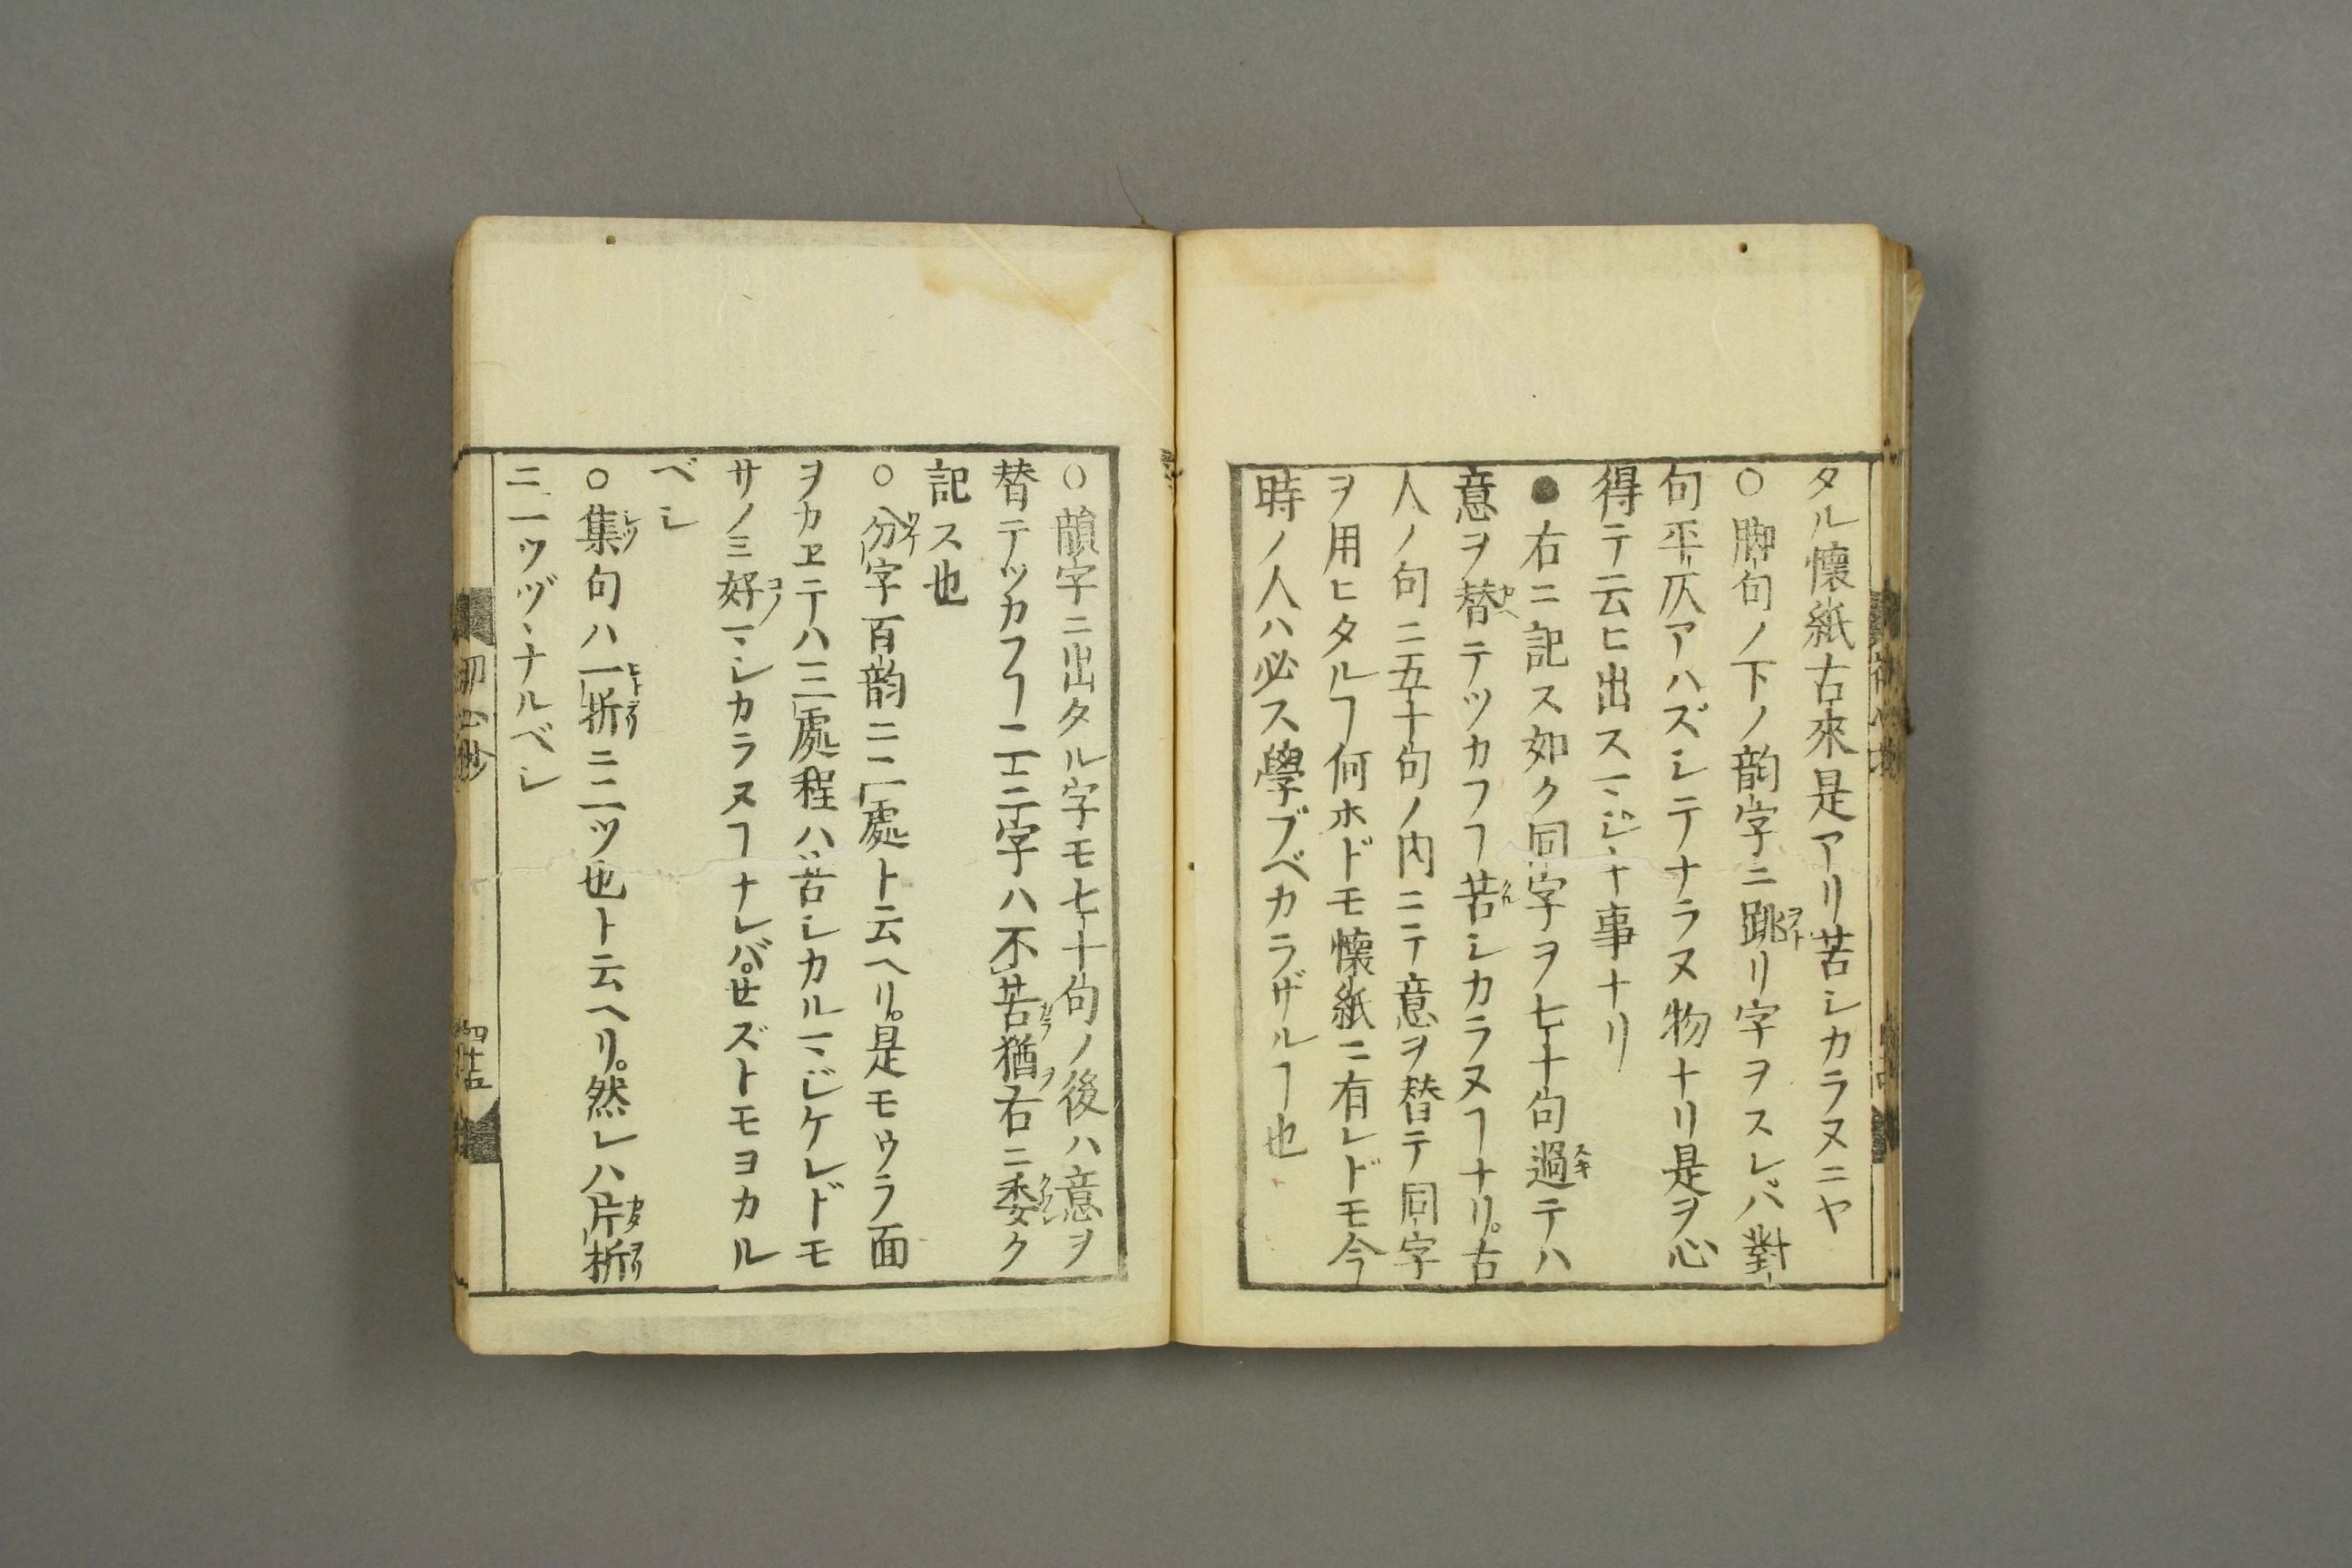 タル懐紙古來是アリ苦シカラヌニヤ
○脚句ノ下ノ韵字ニ跳リ字ヲスレバ對
句平仄アハズシテナラヌ物ナリ是ヲ心
得テ云ヒ出スヿ
●右ニ記ス如ク同字ヲ七十句過テハ
意ヲ替テツカフヿ苦シカラヌヿナリ。古
人ノ句ニ五十句ノ内ニテ意ヲ替テ同字
ヲ用ヒタルヿ何ホドモ懐紙ニ有レドモ今
時ノ人ハ必ス學ブベカラザルヿ也
○韻字ニ出タル字モ七十句ノ後ハ意ヲ
替テツカフヿ二三字ハ不苦猶右ニ委ク
記ス也
○分字百韵ニ二處ト云ヘリ。是モウラ面
ヲカヱテハ三處程ハ苦シカルマジケレドモ
サノミ好マシカラヌヿナレバ。せズトモヨカル
ベシ
○集句ハ一折ニ二ツ也ト云ヘリ。然レハ片折
ニ一ツヅヽナルベシ
初心抄 四十五